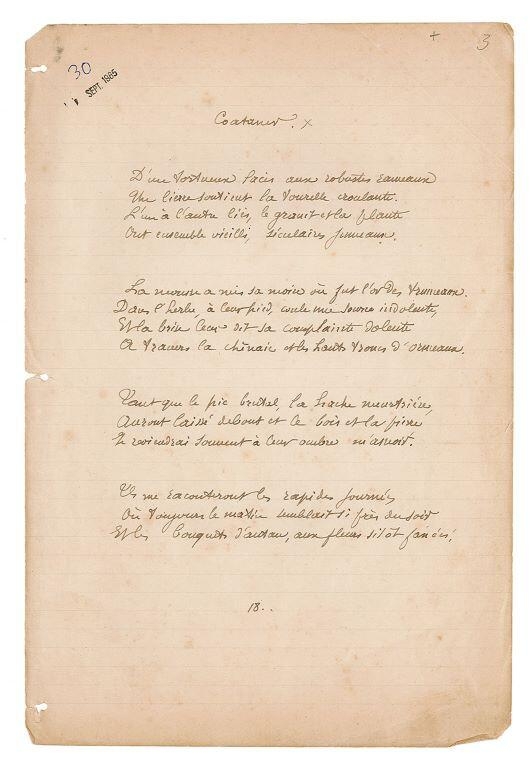 + 3
30
SEPT. 1985
Coataner. x
D'un tortueux lacis aux robustes rameaux
Un lierre soutient la tourelle croulante.
L'un à l'autre liés, le granit et la plante
Ont ensemble vieilli, séculaires jumeaux.
La mousse a mis sa moire où fut l'or des trumeaux.
Dans l'herbe, à leur pied, coule une source indolente,
Et la brise leur dit sa complainte dolente
A travers la chênaie et les hauts troncs d'ormeaux.
Tant que le pic brutal, la hache meurtrière,
Auront laissé debout et le bois et la pierre
Je reviendrai souvent à leur ombre m'asseoir.
Ils me raconteront les rapides journées
Où toujours le matin semblait si près du soir
Et les bouquets d'antan, aux fleurs sitôt fanées.
18..